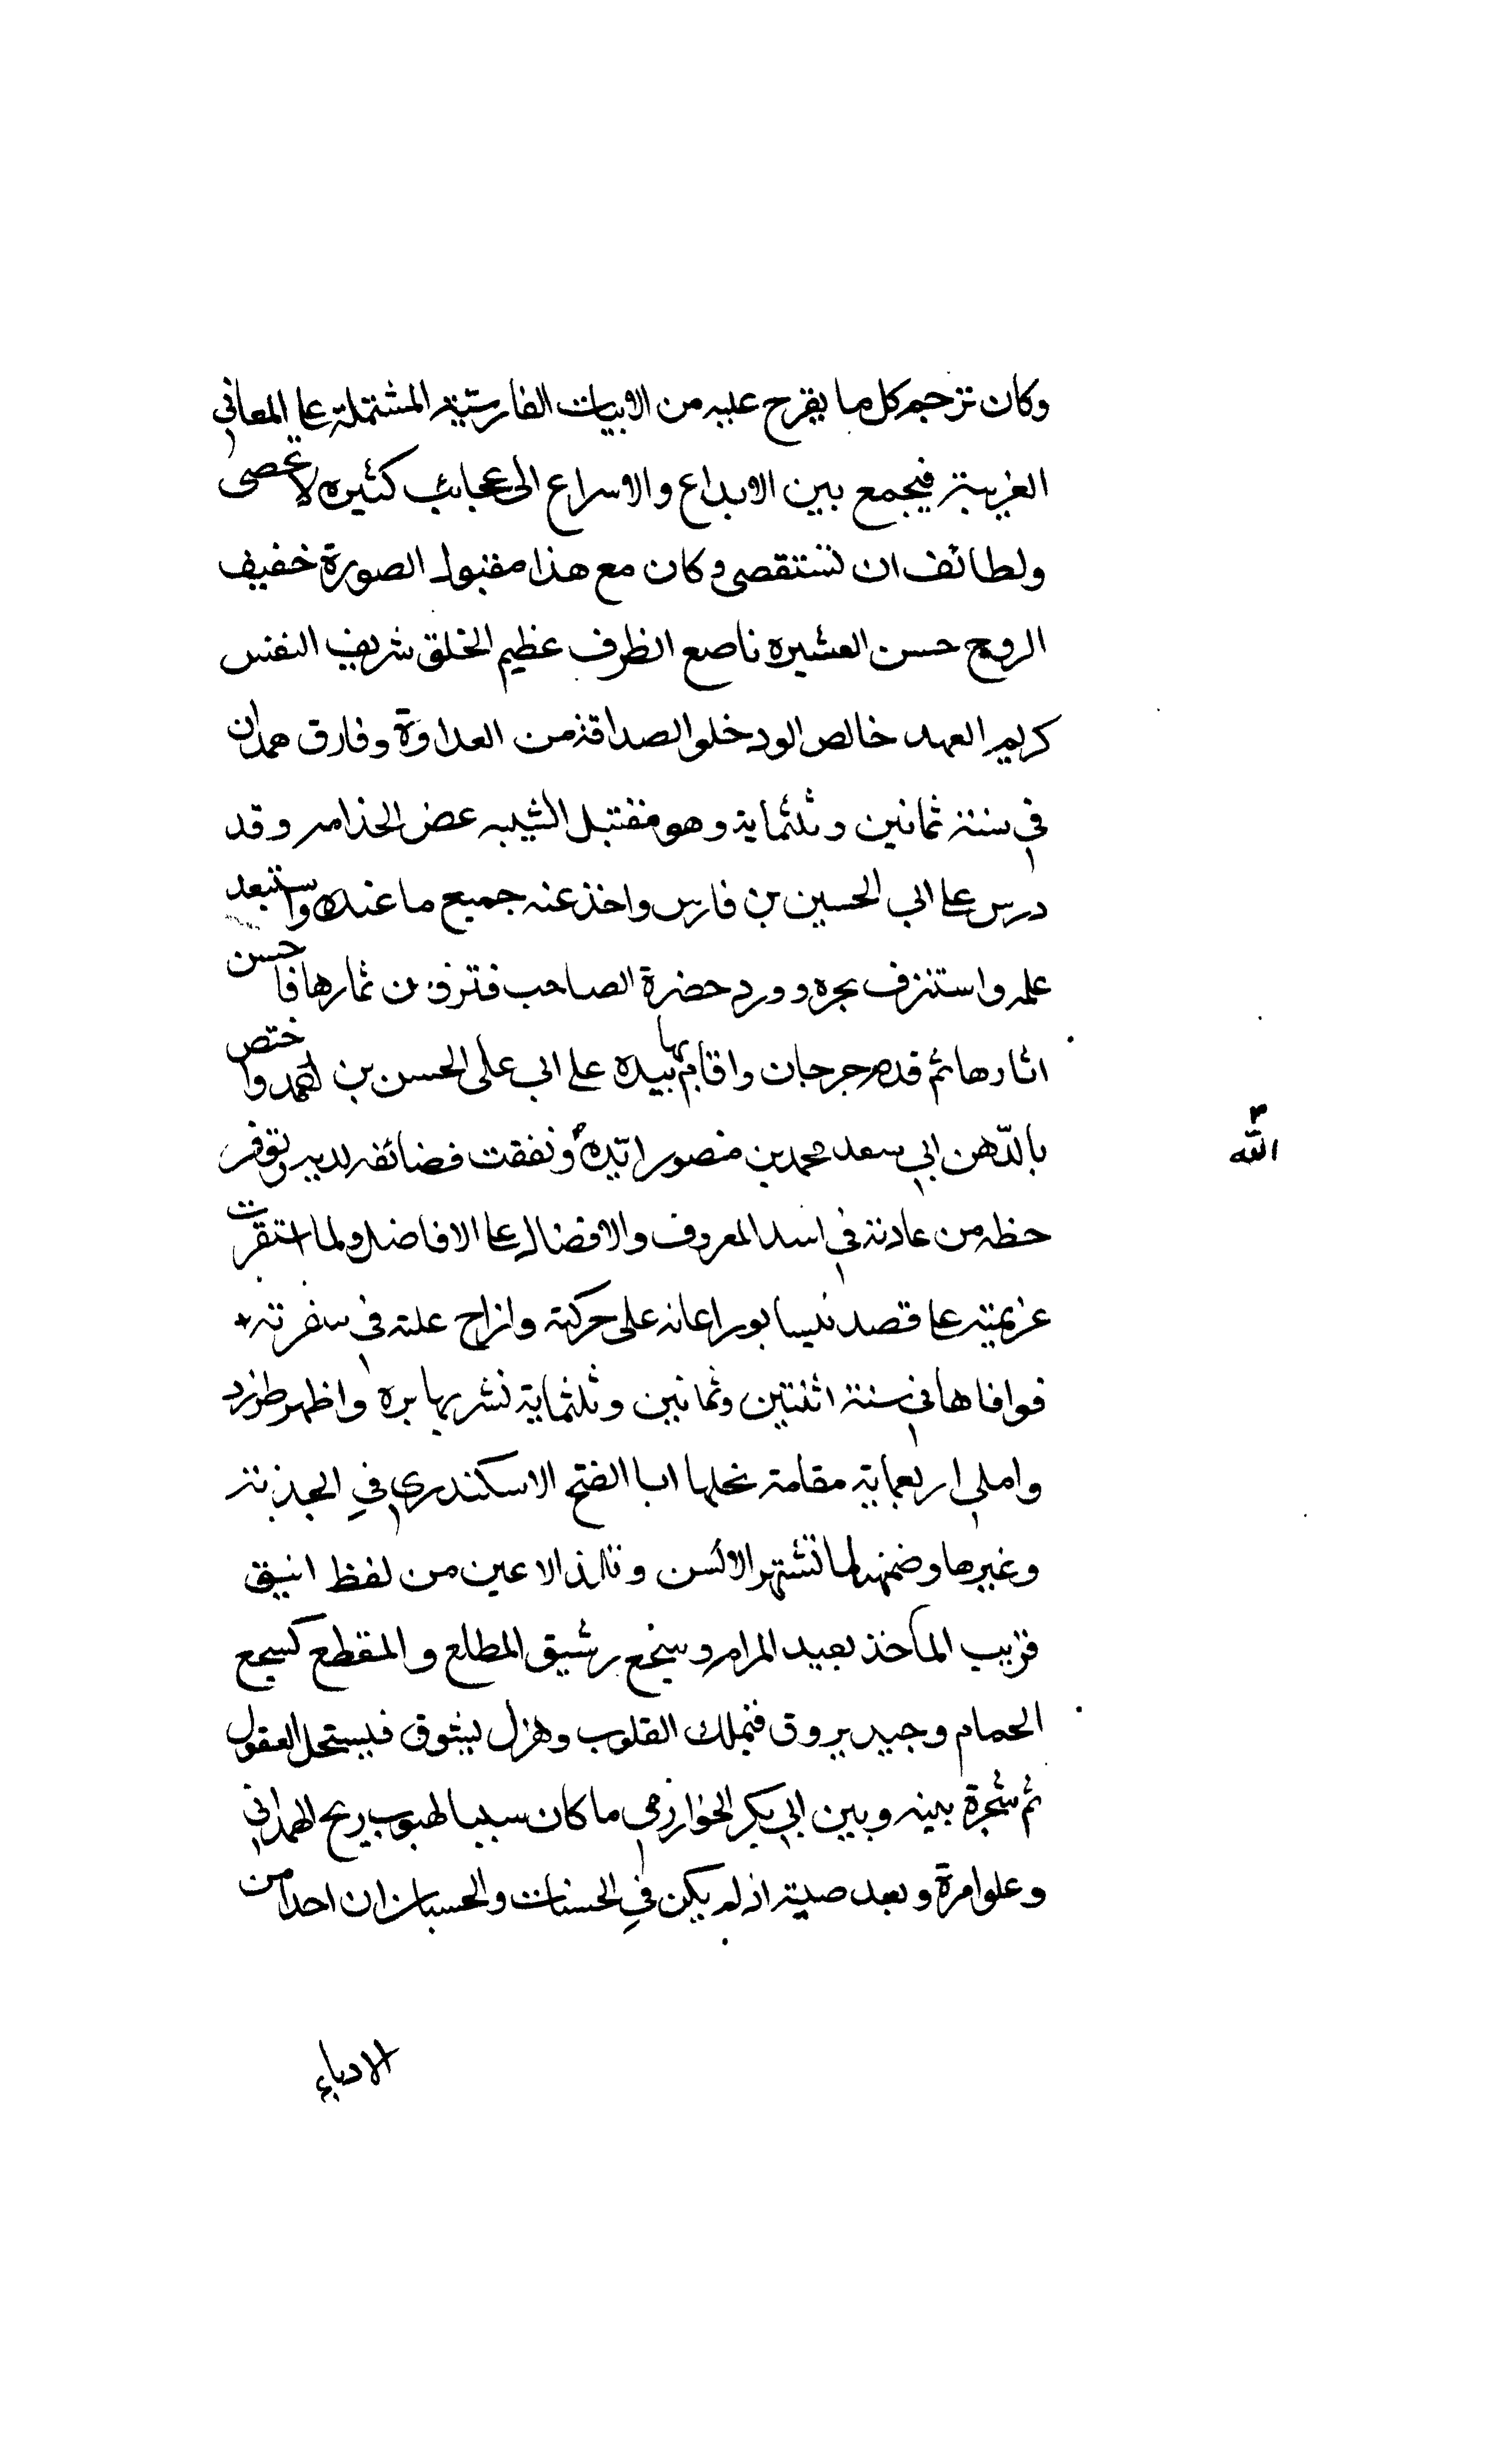 وكان تزجم كل ما يقرح عليه من الابيات الفارسيّة المشتملة على المعاني
الغريبة فيجمع بين الابداع والاسراع الى عجائب كثيره لا تحصى
ولطائف ان تستقصى وكان مع هذا مقبول الصورة خفيف
الروح حسن العشيره ناصع الظرف عظيم الخلق شريف النفس
كريم العهد خالص الود خلو الصداقة من العداوة وفارق همدان
في سنة ثمانين وثلثماية وهو مقتبل الشبيبه غض الحذامه وقد
درس على ابي الحسين بن فارس واخذ عنه جميع ما عنده واستبعد
علمه واستنزف بحره وورد حضرة الصاحب فتزود من ثمارها فاحسن
اثارها ثم قدم جرجان واقام بها بيده على ابي على الحسن بن احمد واختص
بالدّهن ابي سعد محمد بن منصور ايّده الله ونفقت فضائفه لديه وتوفر
حظه من عادته في اسد المعروف والافضال على الافاضل ولما استقرت
عزيمته على قصد نيسابور اعانه على حركته وازاح علته في سفرته
فوافاها في سنة اثنتين وثمانين وثلثماية نشر بها بره واظهر طرزه
واملى اربعماية مقامة نحلها ابا الفتح الاسكندري في الجذبة
وغيرها وضمنها ما تشتهر الالسن وتلذ الاعين من لفظ انيق
قريب المأخذ بعيد المرام وسجع رشيق المطلع والمقطع كسجع
الحمام وجيد يروق فيملك القلوب وهزل يشوق فيستحل العقول
ثم شجرة بينه وبين ابي بكر الخوارزمي ما كان سببا لهبوب ريح الهمداني
وعلو امرة وبعد صيته اذ لم يكن في الحسنات والحسبان ان احدا من
الادباء